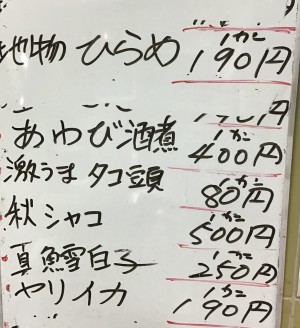 地物 ひらめ 1カン 190円
あわび酒煮 1カン 400円
激うま タコ頭 1カン 80円
秋シャコ 1カン 500円
真鱈白子 1カン 250円
ヤリイカ 1カン 190円